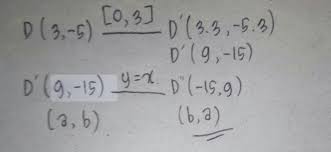 D(3,-5) [0,3] D'(3.3,-5.3)
D'(9,-15)
D'(9,-15) y=x D"(-15,9)
(a,b) (b,a)